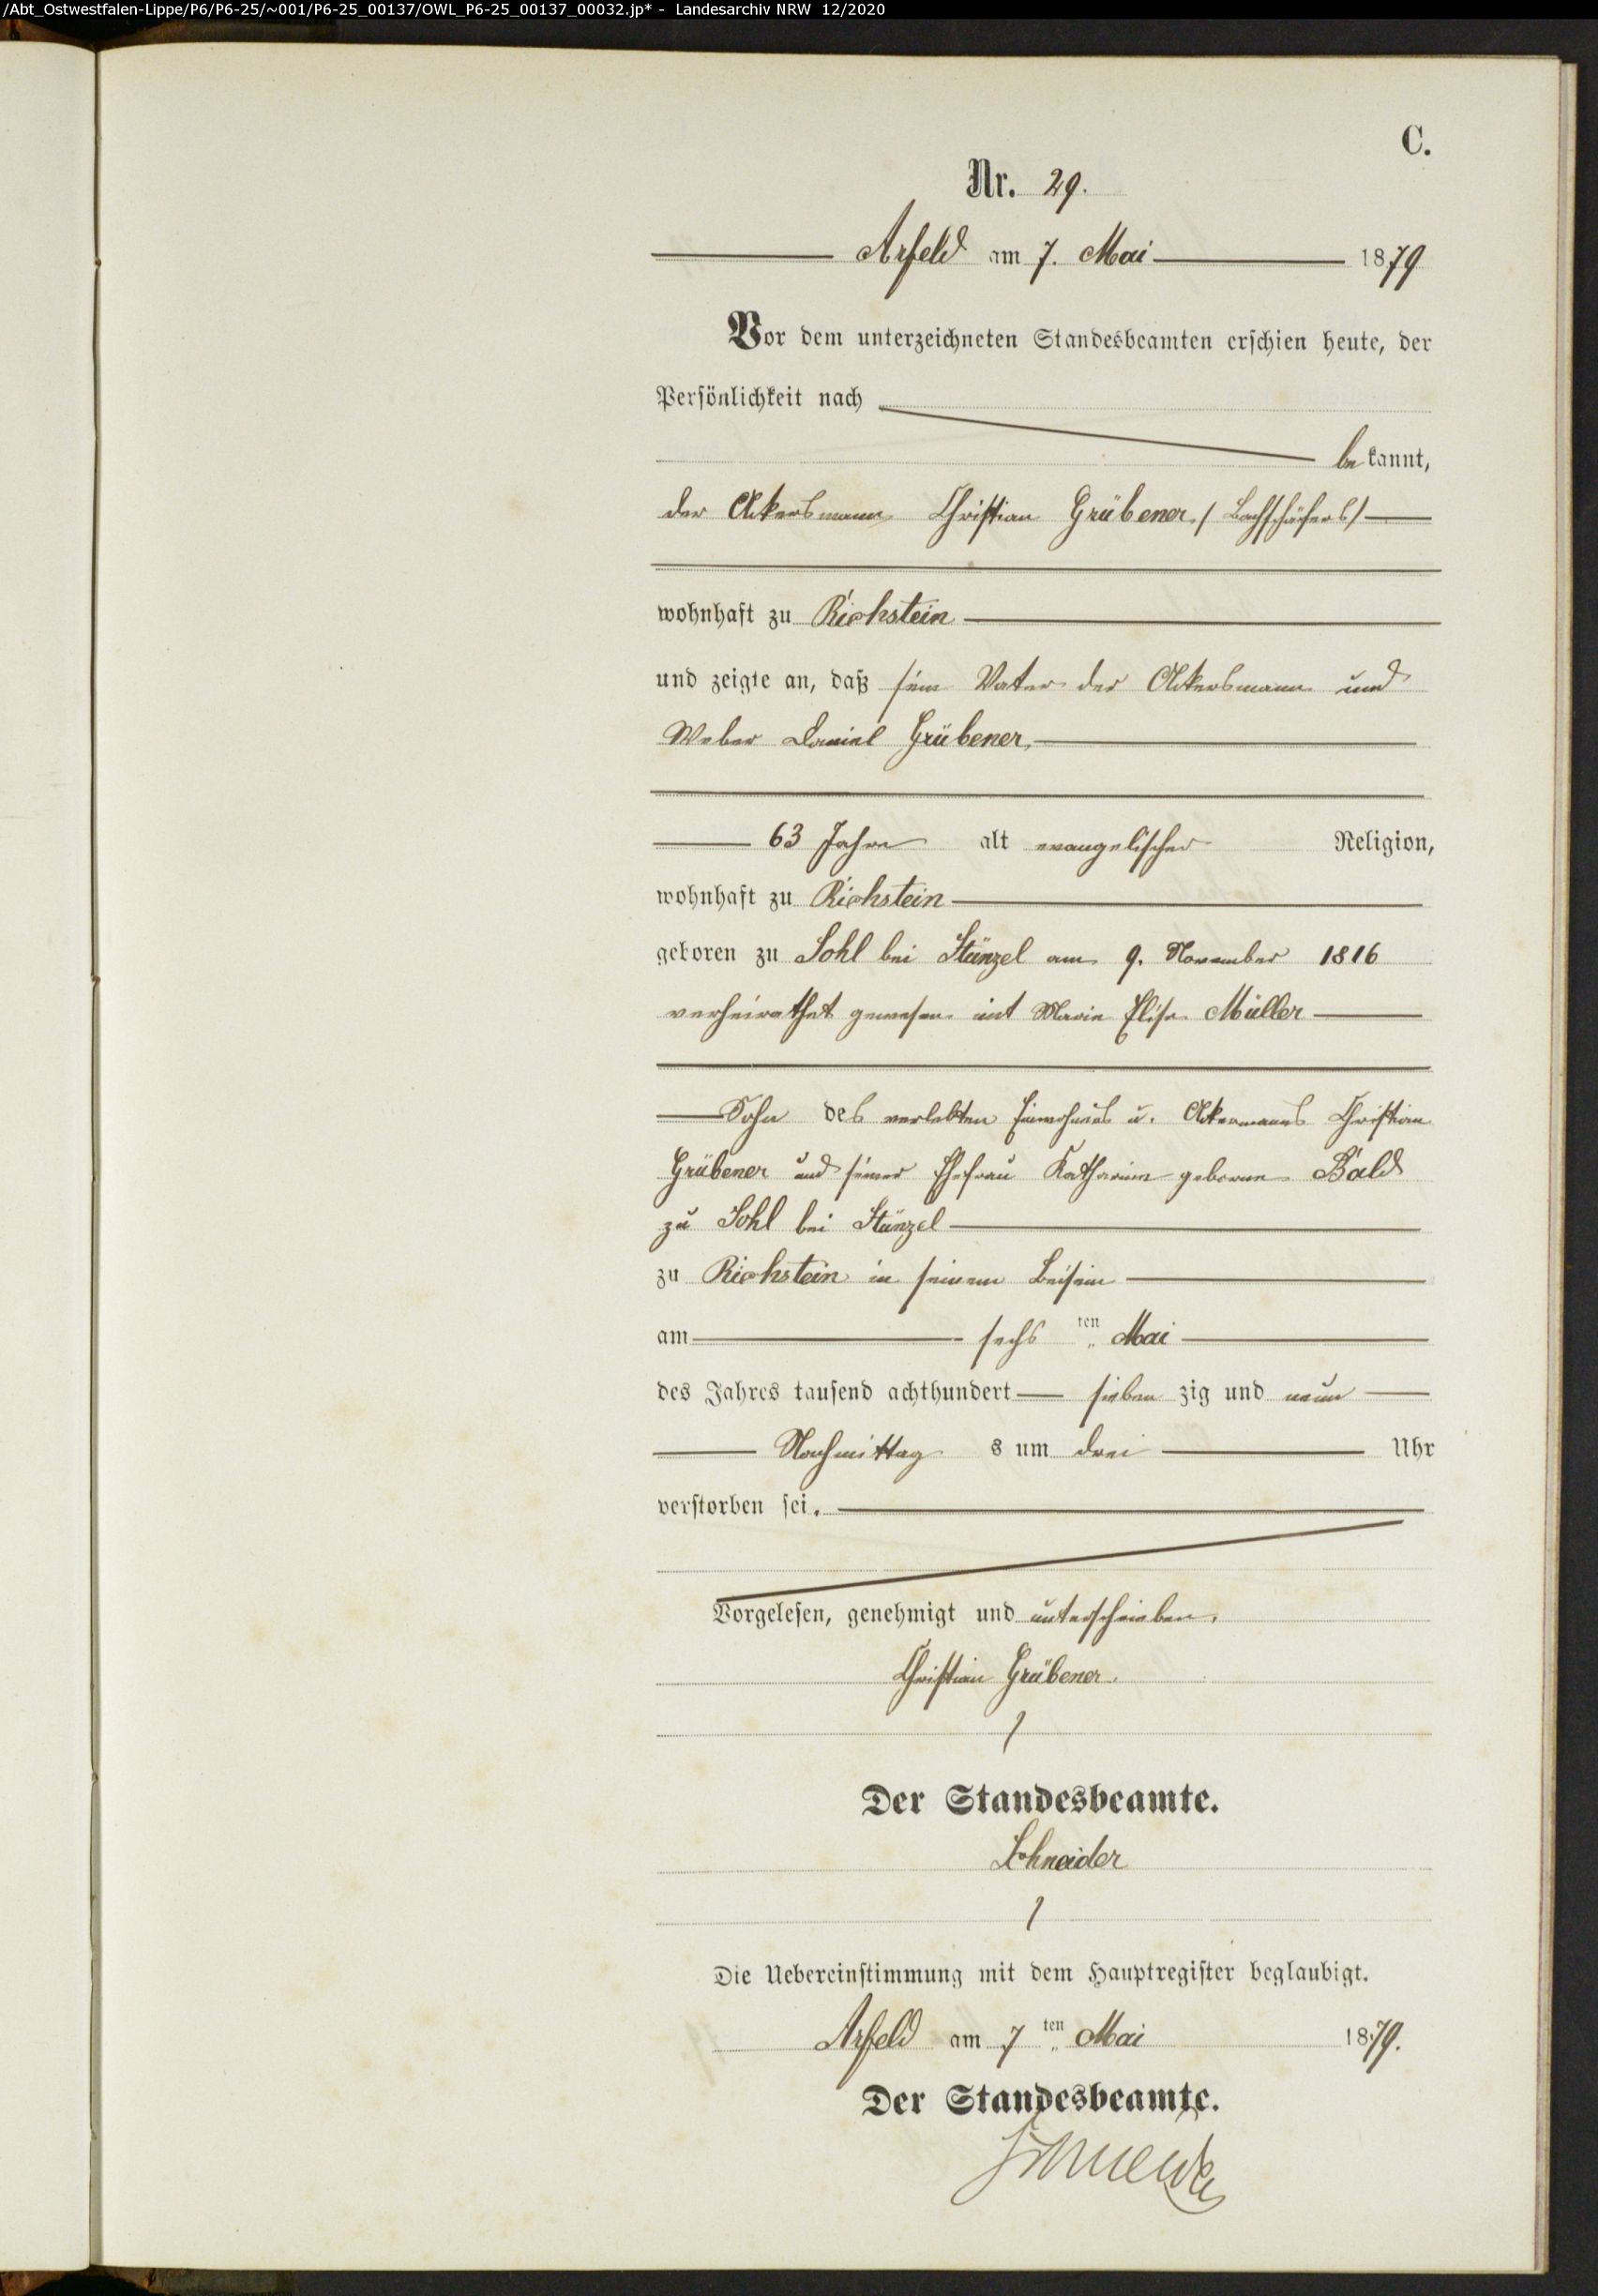 /Abt_Ostwestfalen-Lippe/P6/P6-25/~001/P6-25_00137/OWL_P6-25_00137_00032.jp* - Landesarchiv NRW 12/2020
C.
Nr. 29.
Arfeld am 7. Mai 1879
Vor dem unterzeichneten Standesbeamten erschien heute, der
Persönlichkeit nach
bekannt,
der Ackersmann Christian Grübener (Bachschäfers)
wohnhaft zu Richstein
und zeigte an, daß sein Vater der Ackersmann und
Weber Daniel Grübener,
63 Jahre alt evangelischer Religion,
wohnhaft zu Richstein
geboren zu Sohl bei Stünzel am 9. November 1816
verheirathet gewesen mit Marie Elise Müller
Sohn des verlebten Einwohners u. Ackermanns Christian
Grübener und seiner Ehefrau Katharine geborene Bald
zu Sohl bei Stünzel
zu Richstein in seinem Beisein
am sechs ten Mai
des Jahres tausend achthundert sieben zig und neun
Nachmittag s um drei Uhr
verstorben sei.
Vorgelesen, genehmigt und unterschrieben.
Christian Grübener.
Der Standesbeamte.
Schneider
Die Uebereinstimmung mit dem Hauptregister beglaubigt.
Arfeld am 7 ten Mai 1879.
Der Standesbeamte.
Schneider